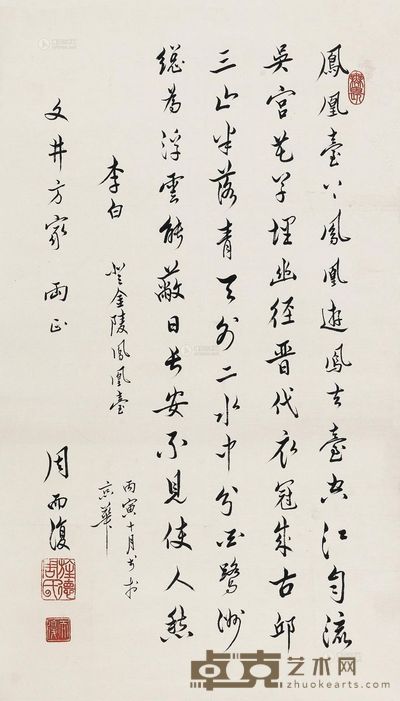 鳳凰臺上鳳凰遊鳳去臺空江自流
吳宮花草埋幽徑晉代衣冠成古邱
三山半落青天外二水中分白鷺洲
總為浮雲能蔽日長安不見使人愁
李白 登金陵鳳凰臺
丙寅十月書於
京華
文井方家両正
周而復
卓克艺术网
zhuokearts.com